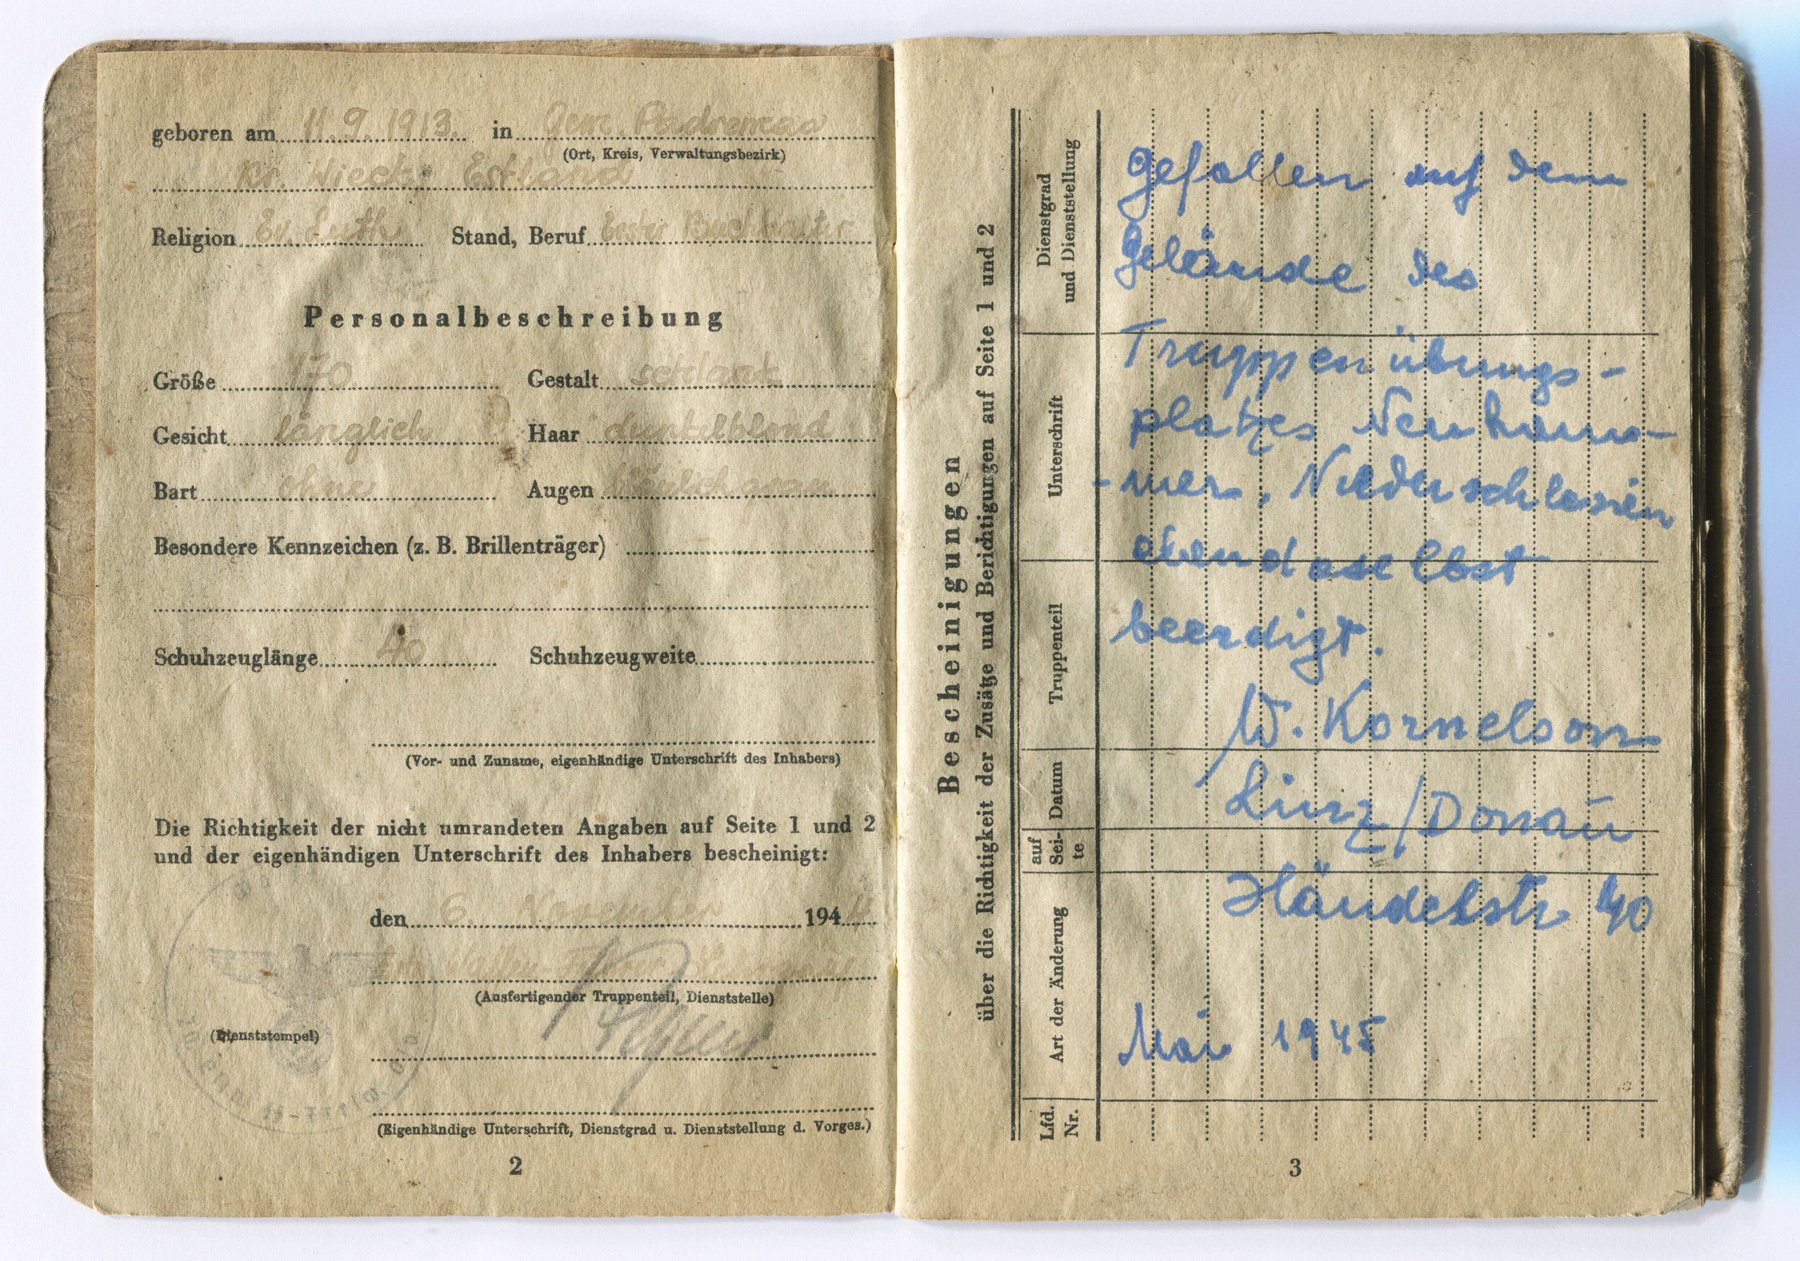 geboren am 11.9.1913. in Gem.
(Ort, Kreis, Verwaltungsbezirk)
Kr. Wieck, Estland
Religion Ev. Luth. Stand, Beruf Buchhalter
Personalbeschreibung
Größe 170 Gestalt schlank
Gesicht länglich Haar dunkelblond
Bart ohne Augen
Besondere Kennzeichen (z. B. Brillenträger)
Schuhzeuglänge 40 Schuhzeugweite
(Vor- und Zuname, eigenhändige Unterschrift des Inhabers)
Die Richtigkeit der nicht umrandeten Angaben auf Seite 1 und 2
und der eigenhändigen Unterschrift des Inhabers bescheinigt:
den 6. November 1944
(Ausfertigender Truppenteil, Dienststelle)
(Dienststempel)
(Eigenhändige Unterschrift, Dienstgrad u. Dienststellung d. Vorges.)
2
Bescheinigungen
über die Richtigkeit der Zusätze und Berichtigungen auf Seite 1 und 2
Dienstgrad
und Dienststellung
Unterschrift
Truppenteil
Datum
auf
Sei-
te
Art der Änderung
Lfd.
Nr.
gefallen auf dem
Gelände des
Truppenübungs-
platzes Neuham-
-mer, Niederschlesien
ebendaselbst
beerdigt.
W. Kornelson
Linz/Donau
Händelstr 40
Mai 1945
3